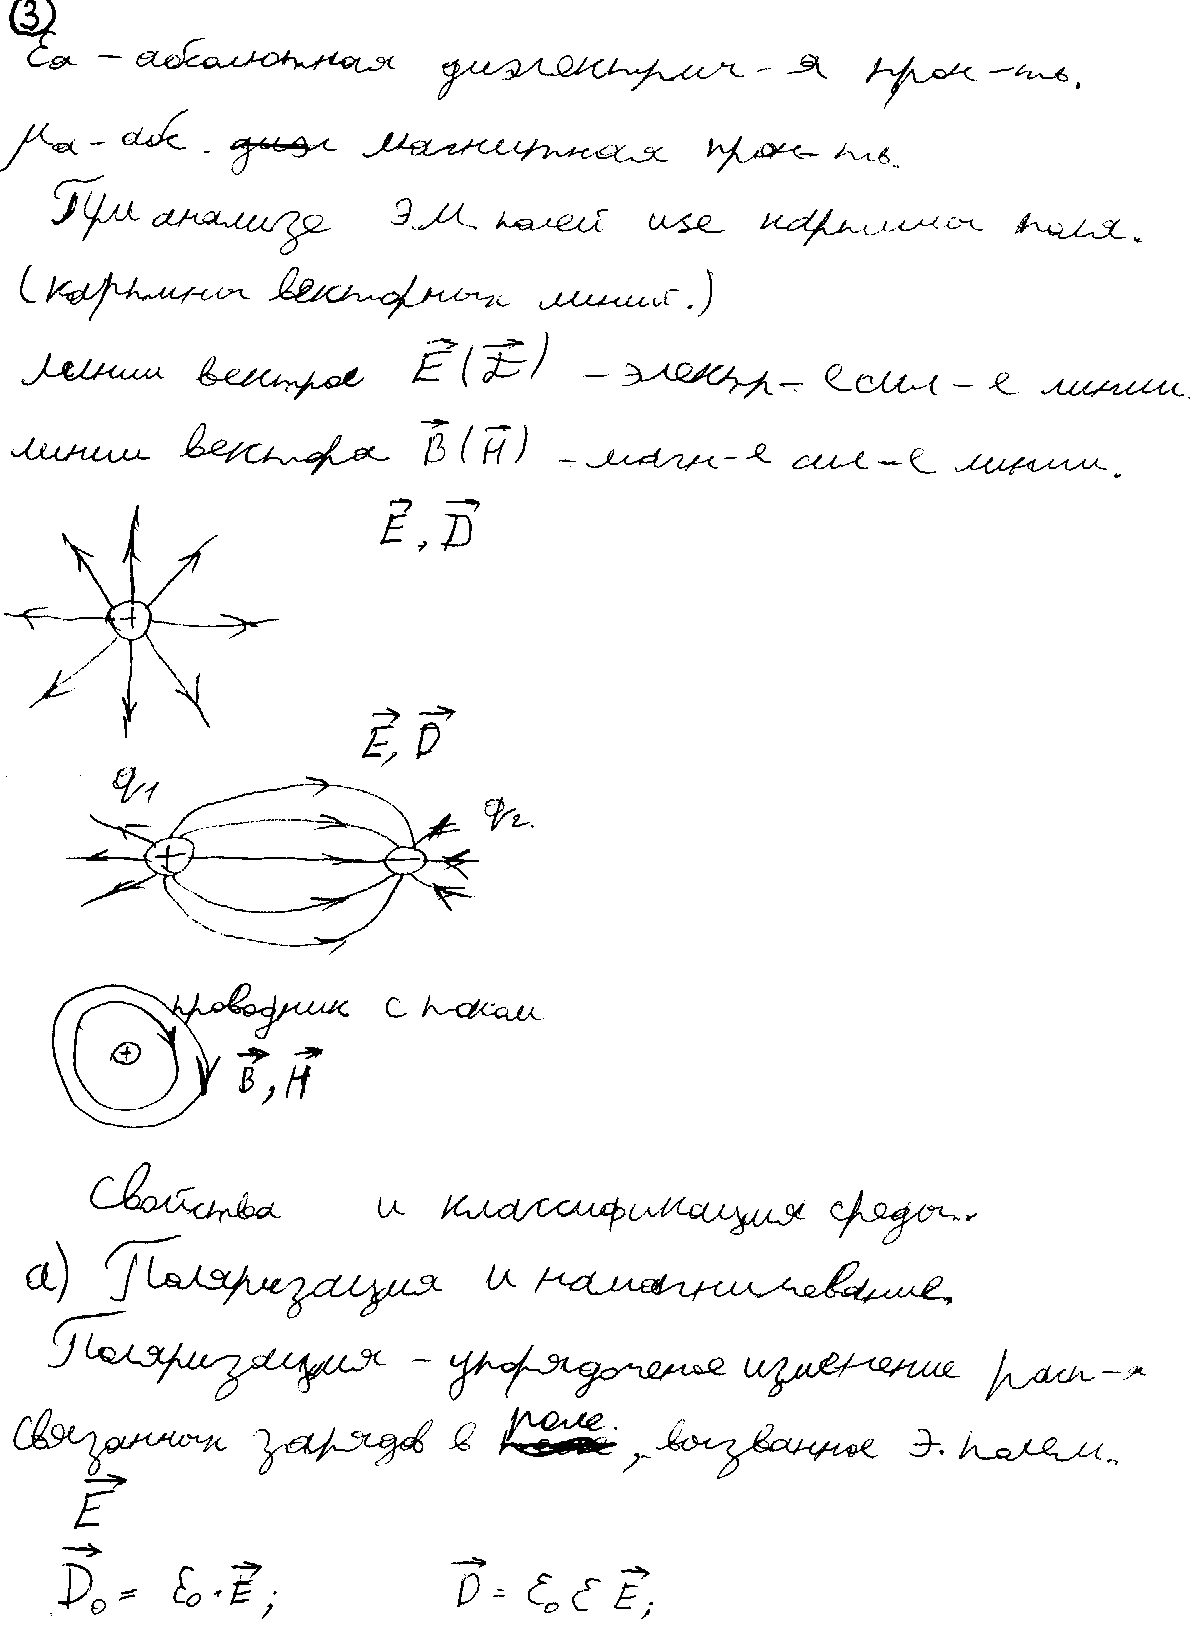 ③
εa – абсолютная диэлектрич-я прон-ть.
μa – абс. магнитная прон-ть.
При анализе ЭМ полей use картины поля.
(картины векторных линий.)
линии вектора E⃗ ( ) – электр-е сил-е линии.
линии вектора B⃗(H⃗) – магн-е сил-е линии.
E⃗, D⃗
+
E⃗, D⃗
q₁
q₂.
+ −
проводник с током
+
B⃗, H⃗
Свойства и классификация среды..
а) Поляризация и намагничевание.
Поляризация – упорядоченое изменение расп-я
связанных зарядов в поле, вызванное Э. полем..
E⃗
D⃗₀ = ε₀·E⃗; D⃗ = ε₀ ε E⃗;